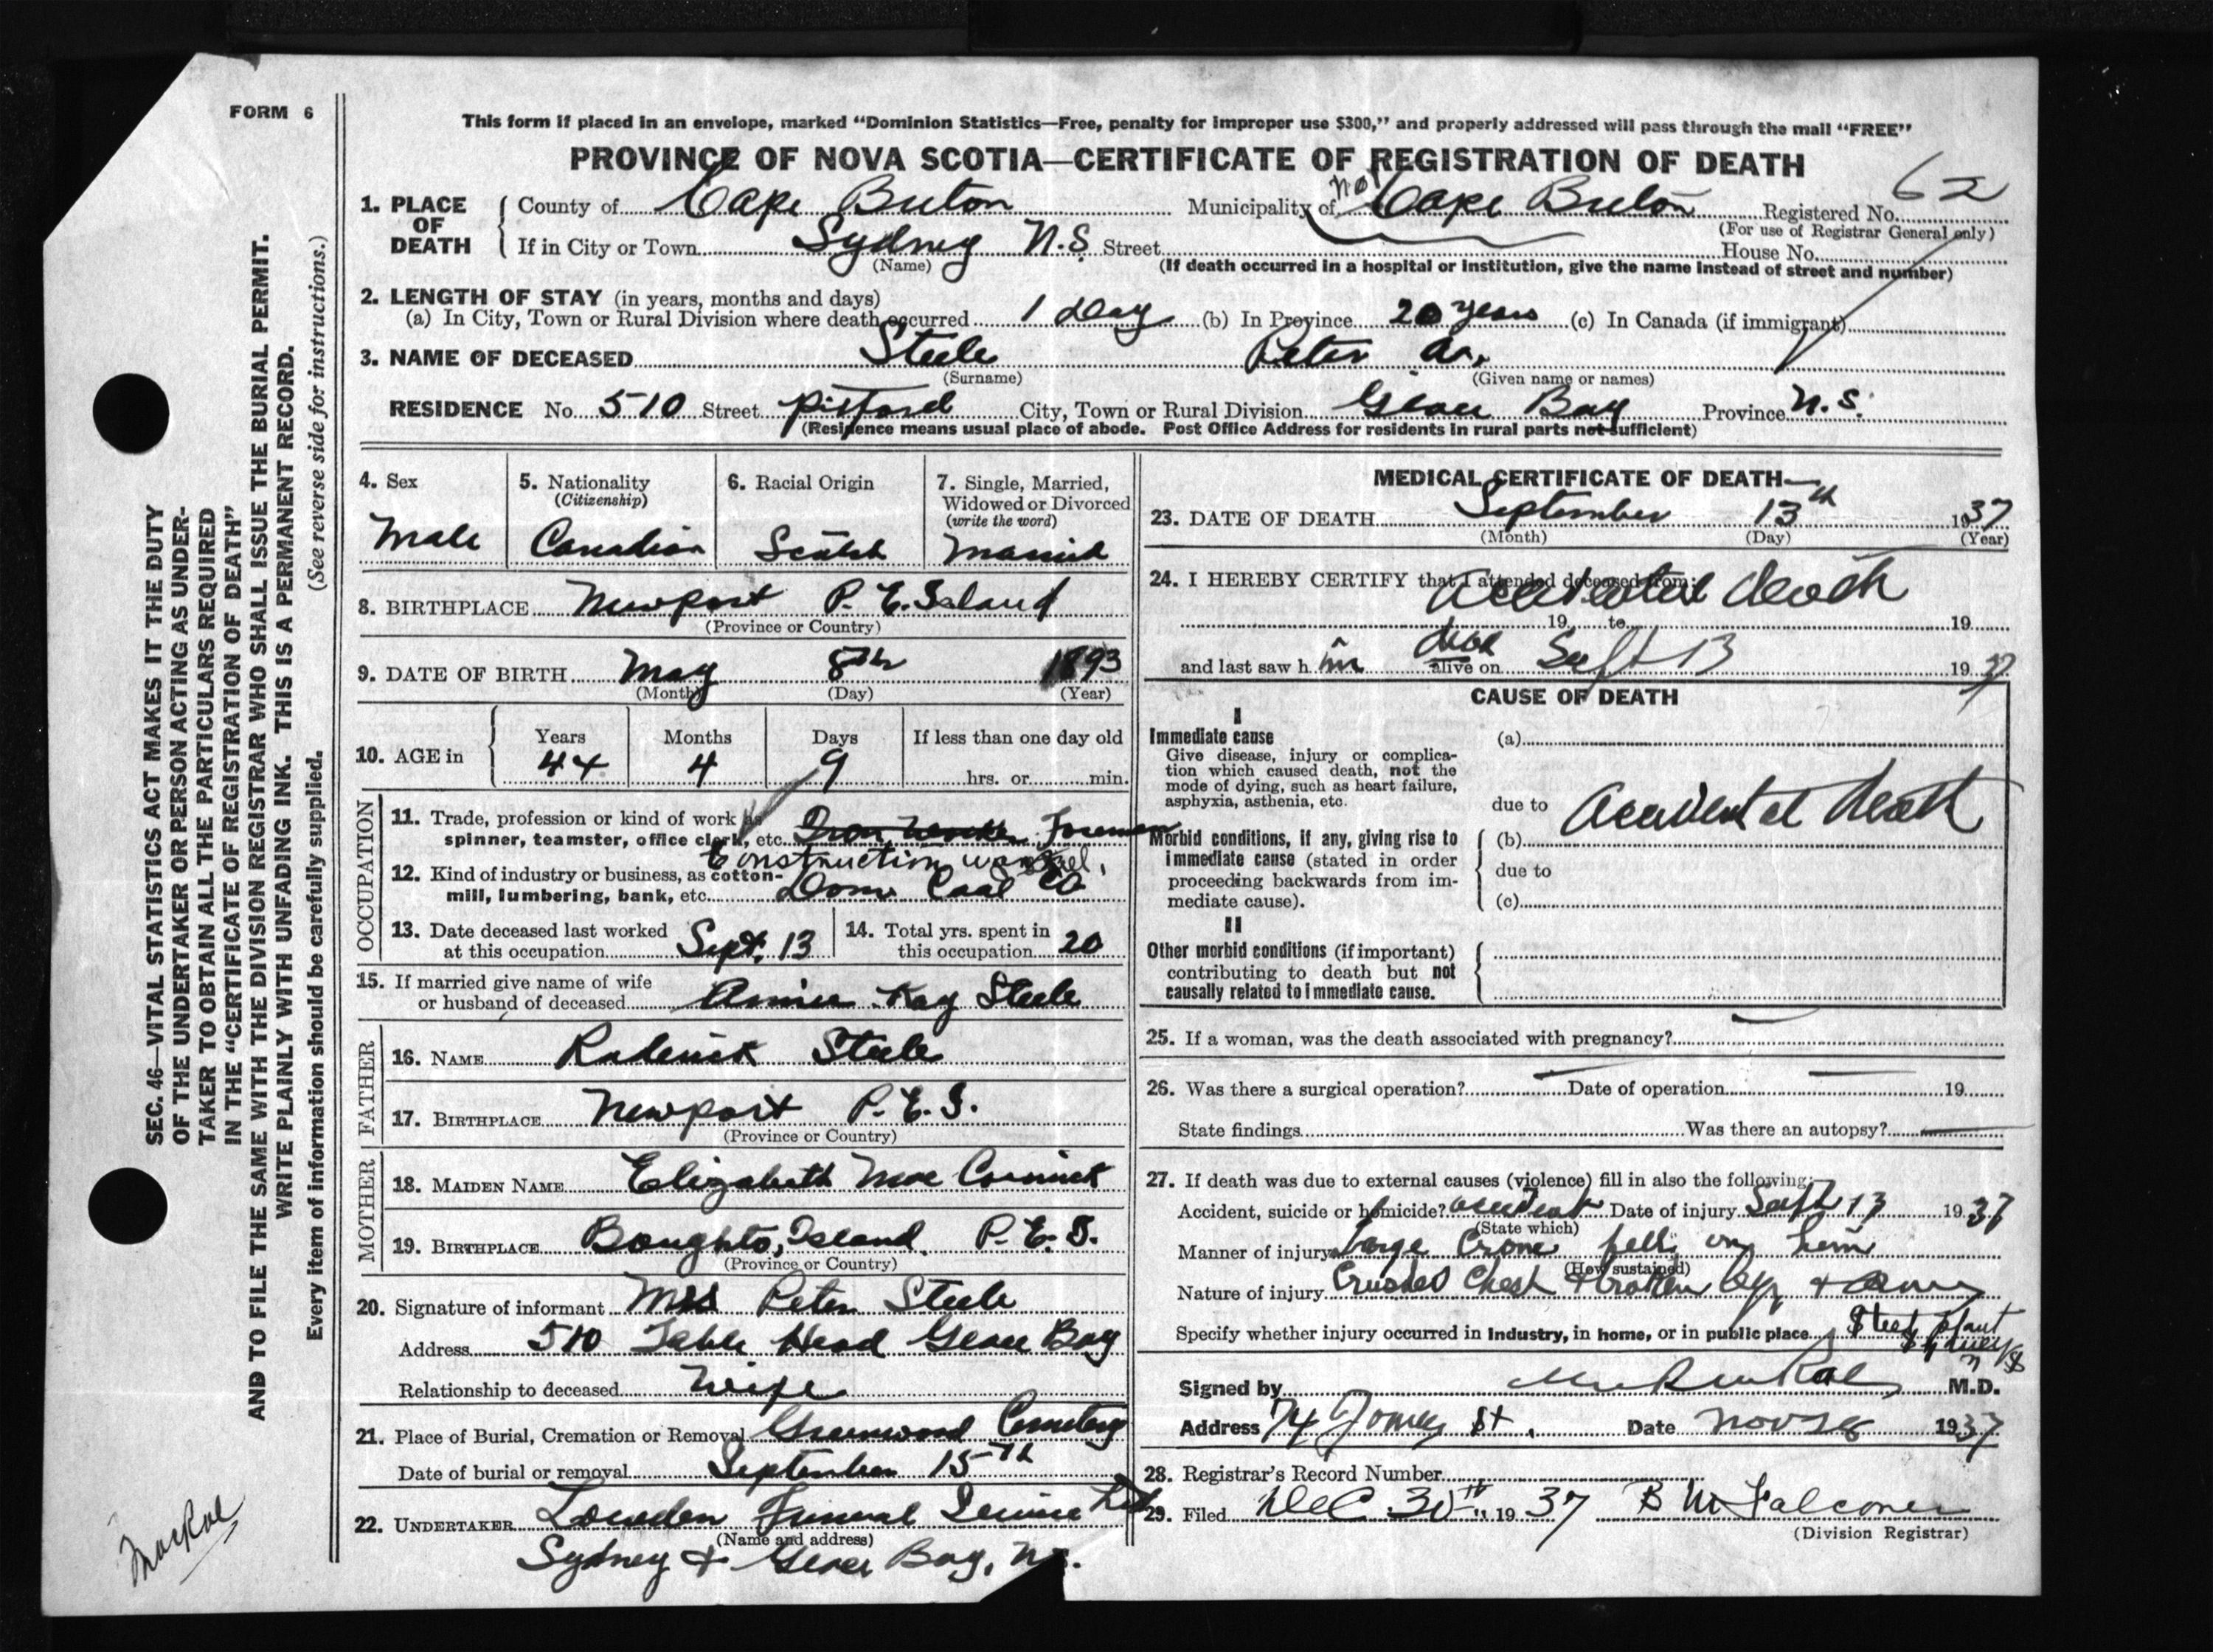 FORM 6
This form if placed in an envelope, marked “Dominion Statistics—Free, penalty for improper use $300,” and properly addressed will pass through the mail “FREE”
PROVINCE OF NOVA SCOTIA—CERTIFICATE OF REGISTRATION OF DEATH
1. PLACE OF DEATH County of Cape Breton Municipality of Cape Breton Registered No. 62
(For use of Registrar General only)
If in City or Town Sydney N.S. Street House No.
(Name) (If death occurred in a hospital or institution, give the name instead of street and number)
2. LENGTH OF STAY (in years, months and days)
(a) In City, Town or Rural Division where death occurred 1 day (b) In Province 20 years (c) In Canada (if immigrant)
3. NAME OF DECEASED Steele Peter
(Surname) (Given name or names)
RESIDENCE No. 510 Street City, Town or Rural Division Glace Bay Province N.S.
(Residence means usual place of abode. Post Office Address for residents in rural parts not sufficient)
4. Sex
Male
5. Nationality
(Citizenship)
Canadian
6. Racial Origin
Scotch
7. Single, Married,
Widowed or Divorced
(write the word)
Married
8. BIRTHPLACE Newport P. E. Island
(Province or Country)
9. DATE OF BIRTH May 8th 1893
(Month) (Day) (Year)
10. AGE in Years Months Days If less than one day old
44 4 9 hrs. or min.
OCCUPATION
11. Trade, profession or kind of work as
spinner, teamster, office clerk, etc. Iron worker Foreman
Construction
12. Kind of industry or business, as cotton-
mill, lumbering, bank, etc. Dom. Coal Co
13. Date deceased last worked
at this occupation Sept. 13
14. Total yrs. spent in
this occupation 20
15. If married give name of wife
or husband of deceased Annie Kay Steele
FATHER
16. NAME Roderick Steele
17. BIRTHPLACE Newport P. E. I.
(Province or Country)
MOTHER
18. MAIDEN NAME Elizabeth Mac Cormick
19. BIRTHPLACE Boughto, Island P. E. I.
(Province or Country)
20. Signature of informant Mrs Peter Steele
Address 510 Table Head Glace Bay
Relationship to deceased Wife
21. Place of Burial, Cremation or Removal Greenwood Cemetery
Date of burial or removal September 15th
22. UNDERTAKER Lowden Funeral Service Ltd
(Name and address)
Sydney & Glace Bay, N.S.
MEDICAL CERTIFICATE OF DEATH
23. DATE OF DEATH September 13th 1937
(Month) (Day) (Year)
24. I HEREBY CERTIFY that I attended deceased from:
Accidental death
19 to 19
and last saw h im dead alive on Sept 13 1937
CAUSE OF DEATH
I
Immediate cause
Give disease, injury or complica-
tion which caused death, not the
mode of dying, such as heart failure,
asphyxia, asthenia, etc.
(a)
due to
Morbid conditions, if any, giving rise to
immediate cause (stated in order
proceeding backwards from im-
mediate cause).
(b) Accidental death
due to
(c)
II
Other morbid conditions (if important)
contributing to death but not
causally related to immediate cause.
25. If a woman, was the death associated with pregnancy?
26. Was there a surgical operation? Date of operation 19
State findings Was there an autopsy?
27. If death was due to external causes (violence) fill in also the following:
Accident, suicide or homicide? accident Date of injury Sept 13 1937
(State which)
Manner of injury Large Crane fell on him
(How sustained)
Nature of injury Crushed Chest & broken legs & arms
Specify whether injury occurred in industry, in home, or in public place Steel plant
Sydney N S
Signed by M.D.
Address 74 St. Date Nov 1937
28. Registrar's Record Number
29. Filed Dec 30th 1937 B M Falconer
(Division Registrar)
SEC. 46—VITAL STATISTICS ACT MAKES IT THE DUTY
OF THE UNDERTAKER OR PERSON ACTING AS UNDER-
TAKER TO OBTAIN ALL THE PARTICULARS REQUIRED
IN THE “CERTIFICATE OF REGISTRATION OF DEATH”
AND TO FILE THE SAME WITH THE DIVISION REGISTRAR WHO SHALL ISSUE THE BURIAL PERMIT.
WRITE PLAINLY WITH UNFADING INK. THIS IS A PERMANENT RECORD.
Every item of information should be carefully supplied. (See reverse side for instructions.)